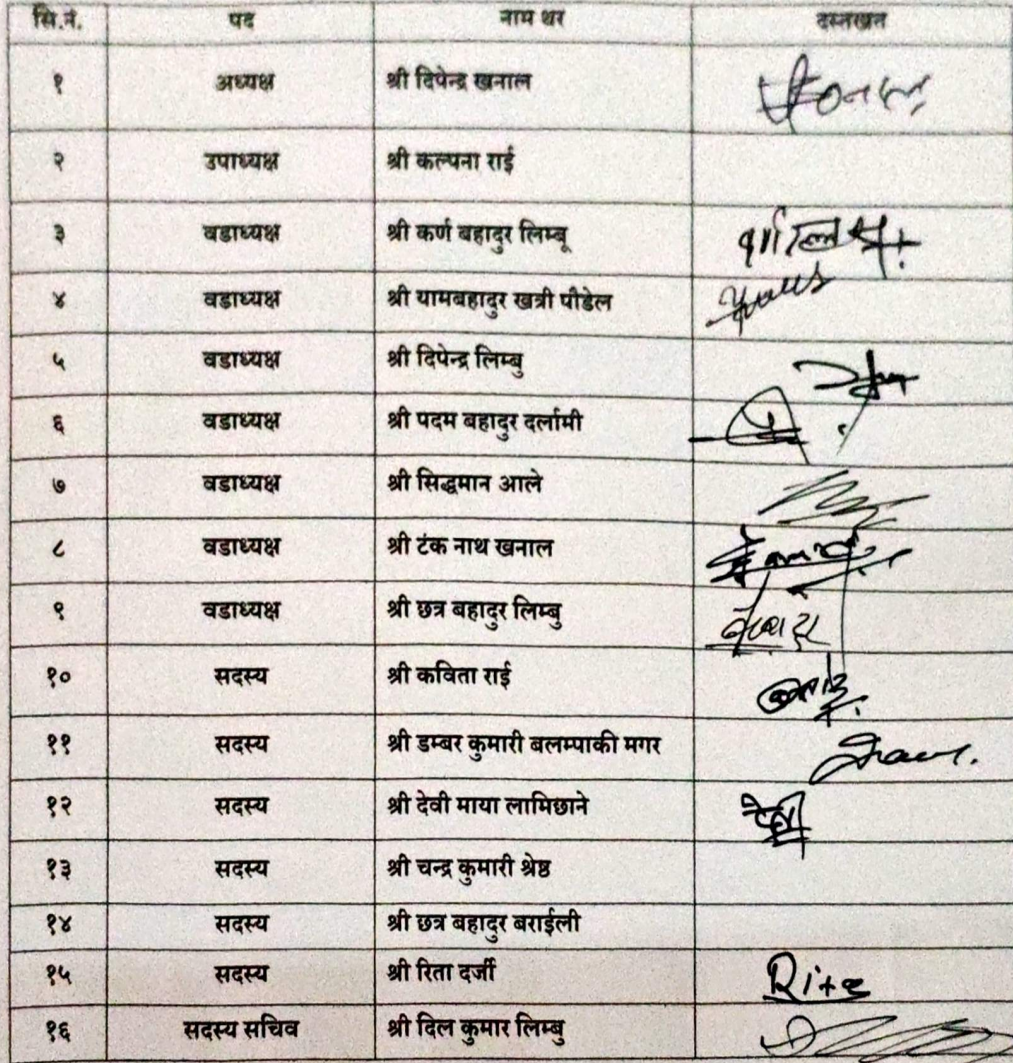 सि.नं. पद नाम थर दस्तखत
१ अध्यक्ष श्री दिपेन्द्र खनाल
२ उपाध्यक्ष श्री कल्पना राई
३ वडाध्यक्ष श्री कर्ण बहादुर लिम्बू
४ वडाध्यक्ष श्री यामबहादुर खत्री पौडेल
५ वडाध्यक्ष श्री दिपेन्द्र लिम्बु
६ वडाध्यक्ष श्री पदम बहादुर दर्लामी
७ वडाध्यक्ष श्री सिद्धमान आले
८ वडाध्यक्ष श्री टंक नाथ खनाल
९ वडाध्यक्ष श्री छत्र बहादुर लिम्बु
१० सदस्य श्री कविता राई
११ सदस्य श्री डम्बर कुमारी बलम्पाकी मगर
१२ सदस्य श्री देवी माया लामिछाने
१३ सदस्य श्री चन्द्र कुमारी श्रेष्ठ
१४ सदस्य श्री छत्र बहादुर बराईली
१५ सदस्य श्री रिता दर्जी Rita
१६ सदस्य सचिव श्री दिल कुमार लिम्बु